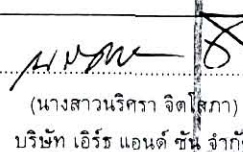 (นางสาวนริศรา จิตโสภา)
บริษัท เอิร์ธ แอนด์ ซัน จำกั